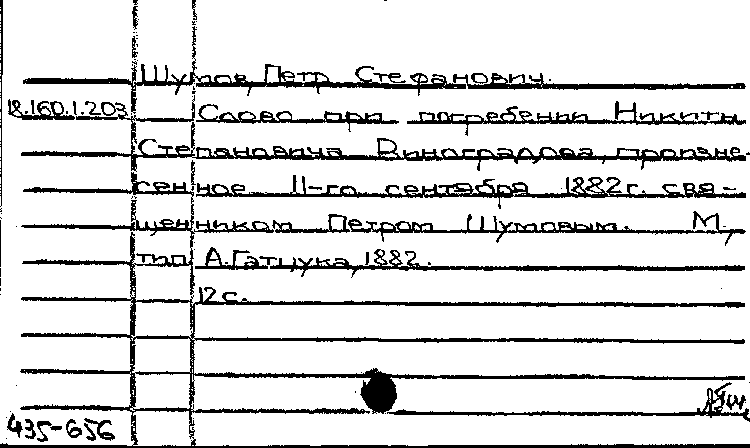 Шумов, Петр Стефанович.
18.160.1.203 Слово при погребении Никиты
Степановича Виноградова, произне-
сенное 11-го сентября 1882 г. свя-
щенником Петром Шумовым. М.,
тип. А. Гатцука, 1882.
12 с.
435-656